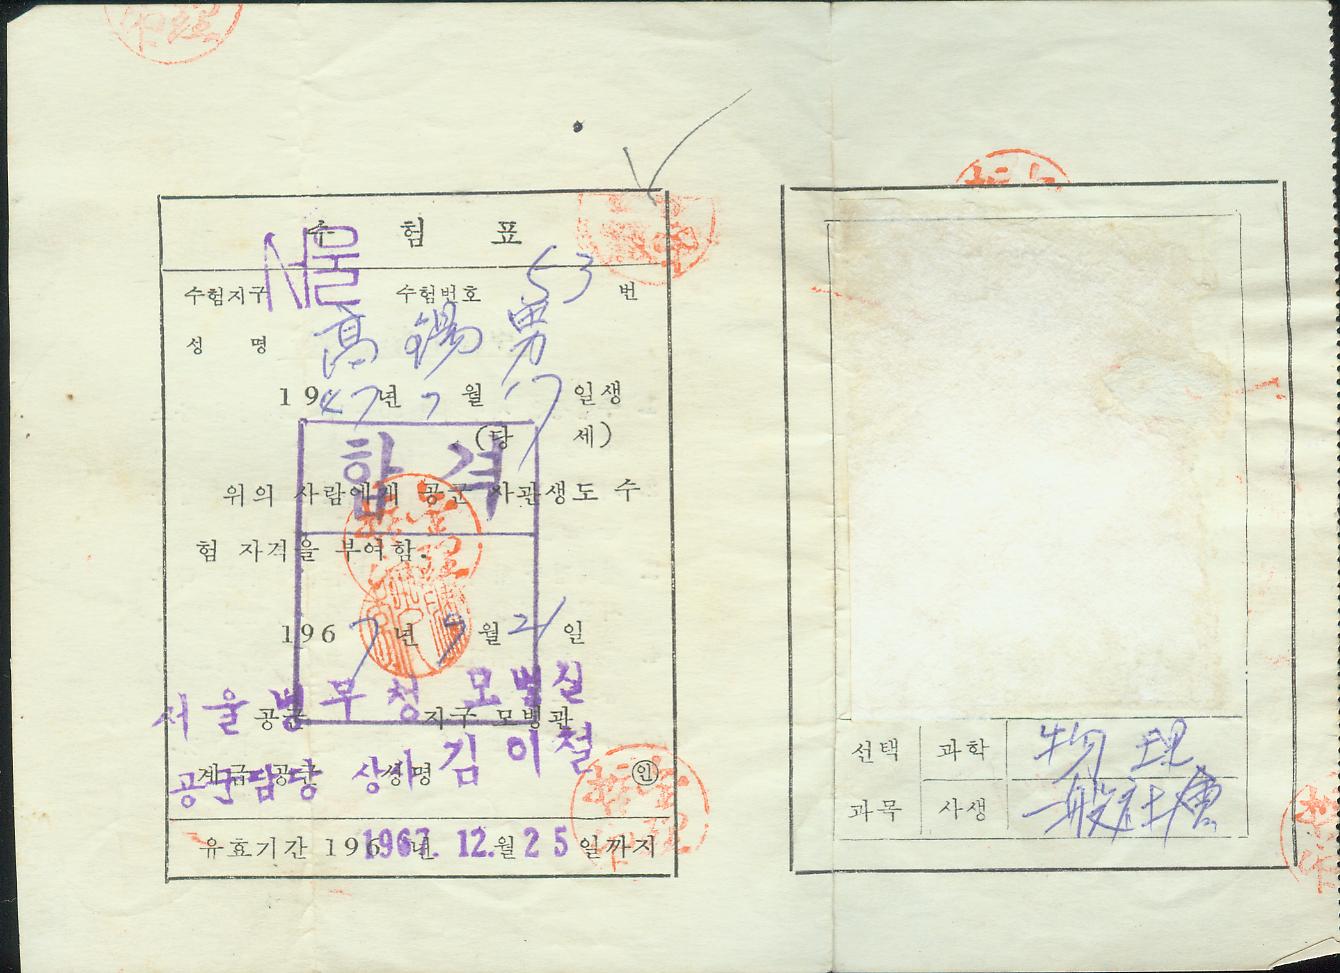 수험표
수험지구 서울 수험번호 53 번
성명 高錫男
1947년 7월 17일생
(당 세)
합격
위의 사람에게 공군 사관생도 수
험 자격을 부여함.
1967년 9월 21일
서울병무청 모병실
공군 지구 모병관
공군담당 상사 김이철
계급 공군 성명 ㊞
유효기간 196 년 1967. 12.월 25일까지
선택 과학 物理
과목 사생 一般社會